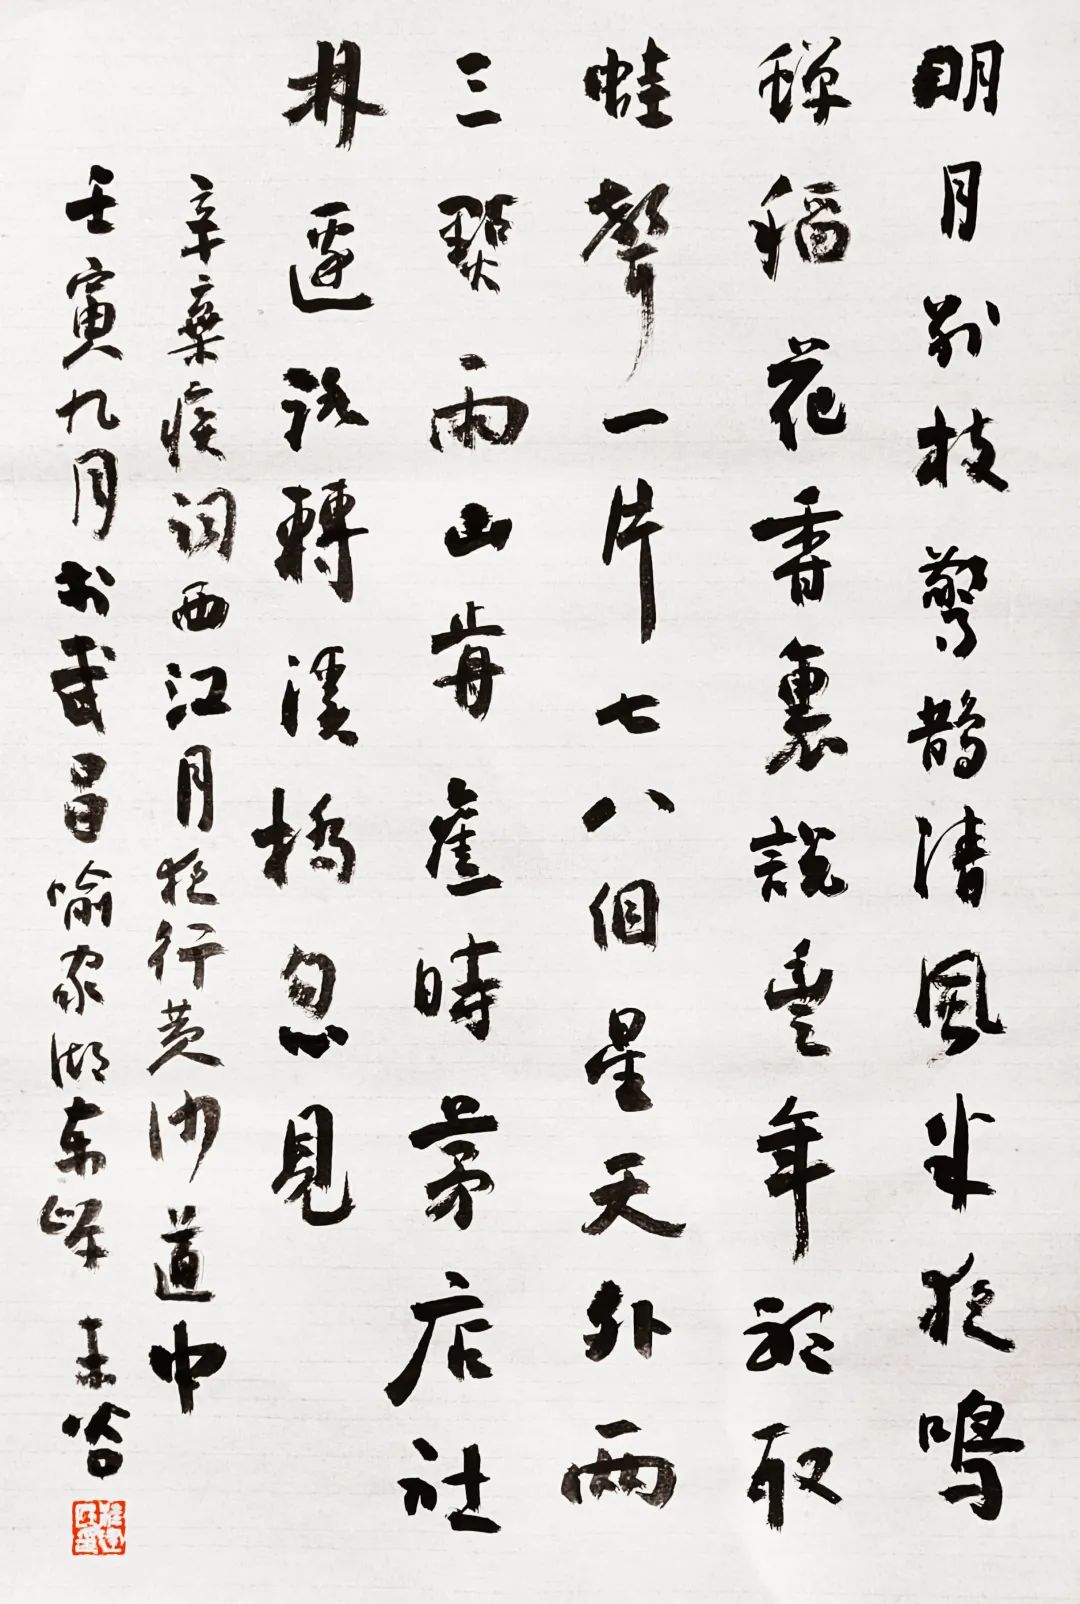 明月别枝驚鵲清風半夜鳴
蟬稻花香裏說豐年聽取
蛙聲一片七八個星天外兩
三點雨山前舊時茅店社
林邊路轉溪橋忽見
辛棄疾詞西江月夜行黄沙道中
壬寅九月於武昌喻家湖東